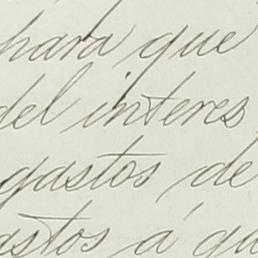 para que
del interes
gastos de
astos á qu